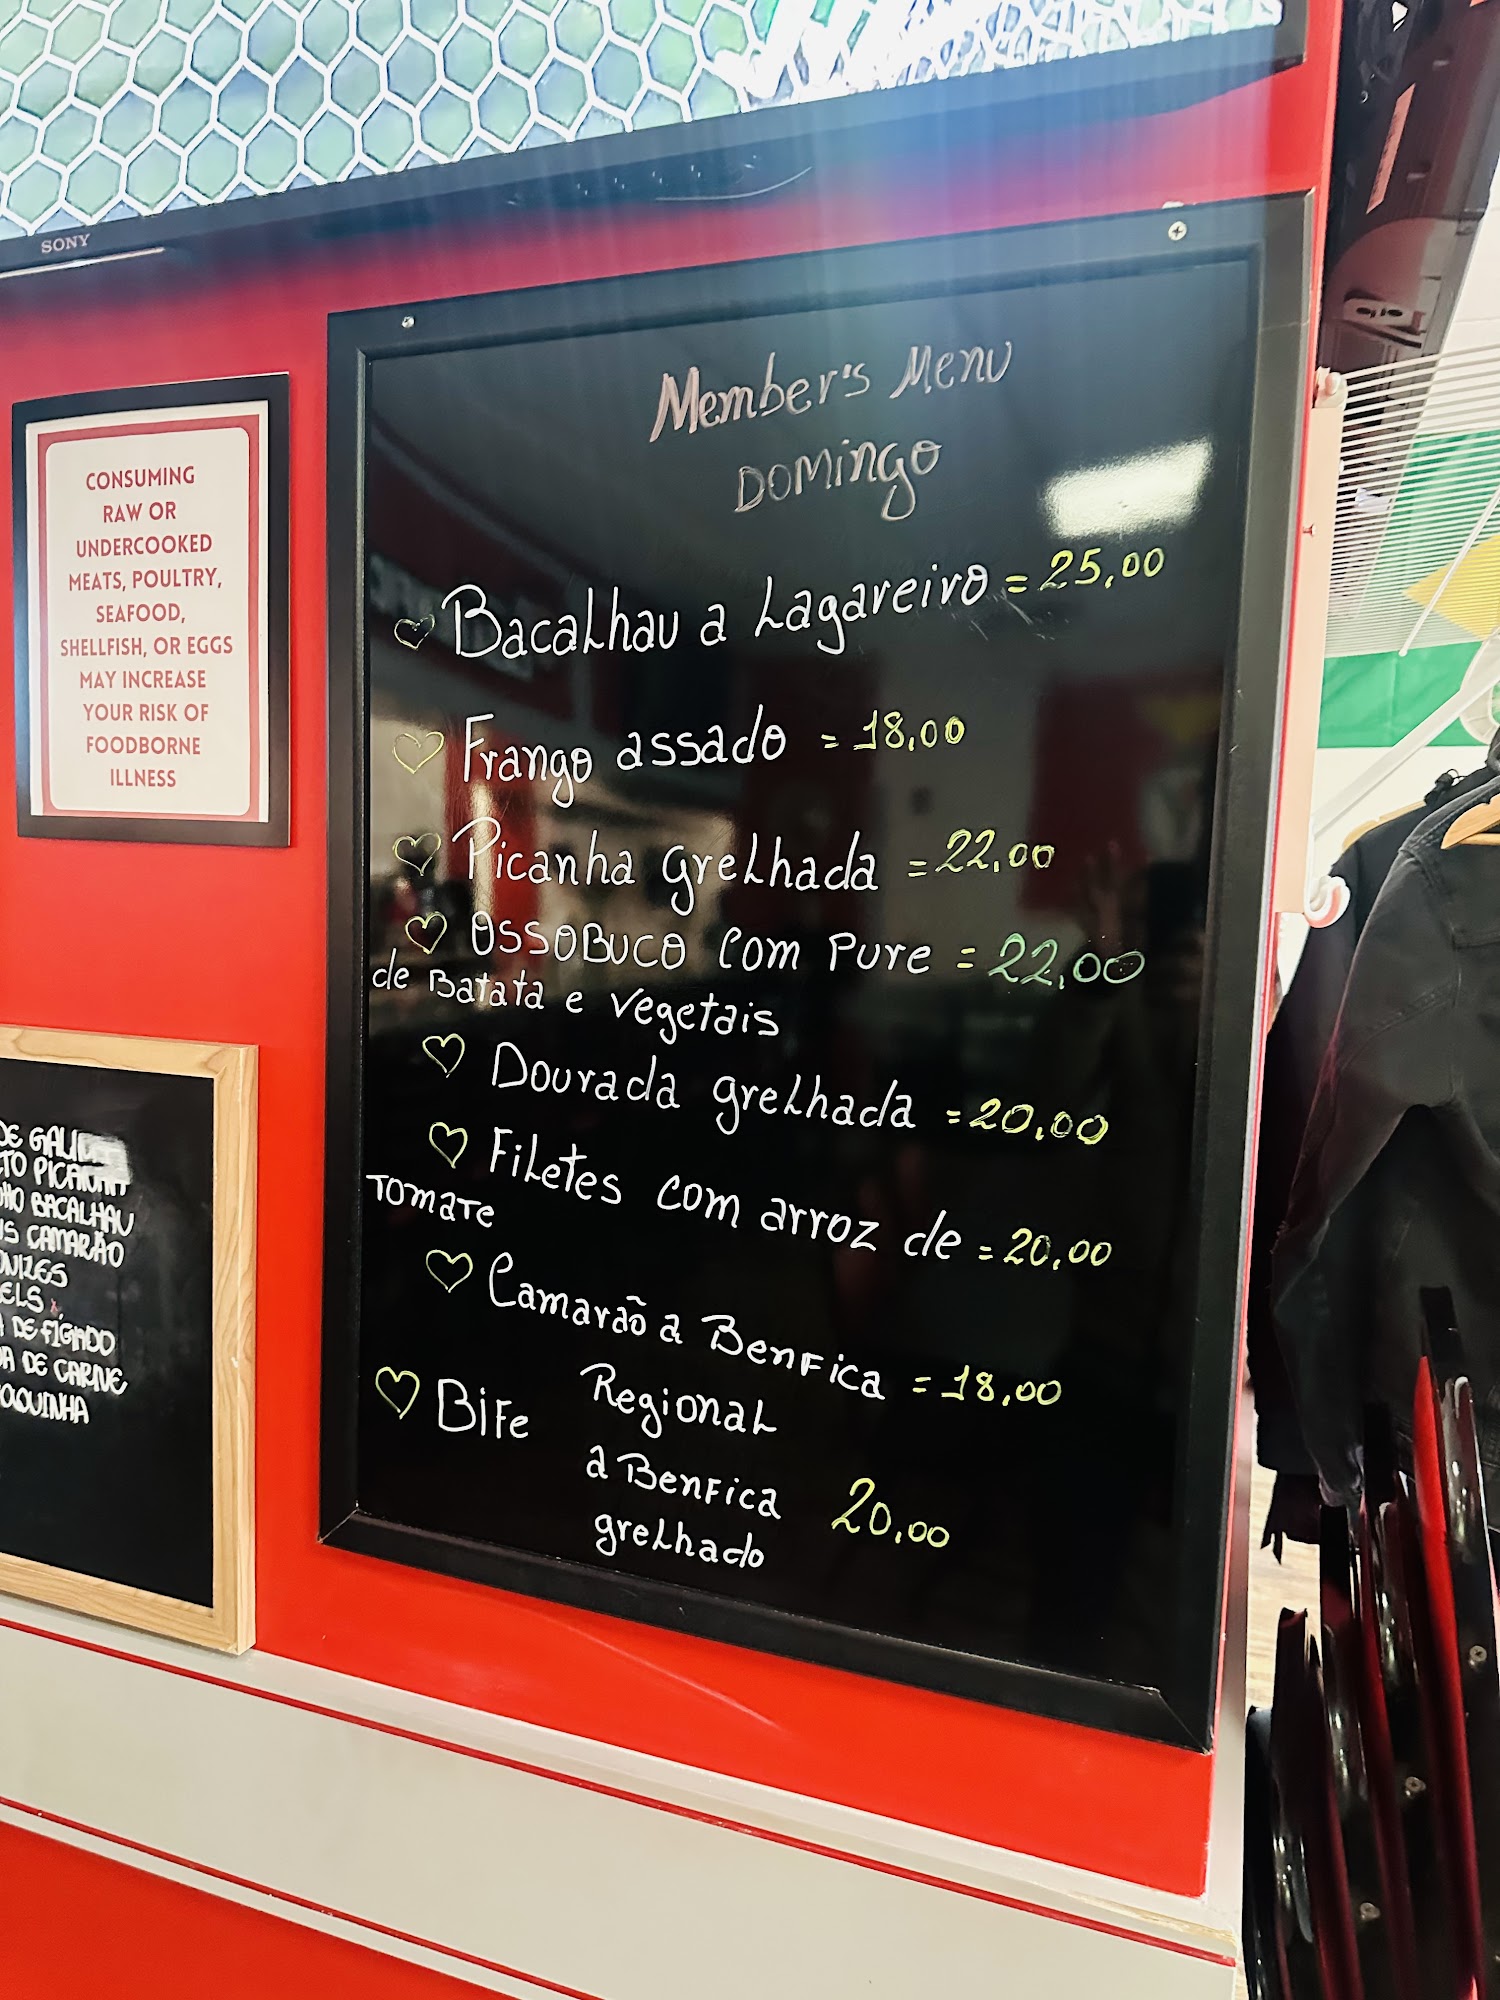 SONY
CONSUMING
RAW OR
UNDERCOOKED
MEATS, POULTRY,
SEAFOOD,
SHELLFISH, OR EGGS
MAY INCREASE
YOUR RISK OF
FOODBORNE
ILLNESS
Member's Menu
Domingo
Bacalhau a Lagareiro = 25,00
Frango assado = 18,00
Picanha grelhada = 22,00
OSSOBUCO com pure = 22,00
de Batata e vegetais
Dourada grelhada = 20,00
Filetes com arroz de = 20,00
Tomate
Camarão a Benfica = 18,00
Bife Regional
a Benfica 20,00
grelhado
DE
PICANHA
BACALHAU
CAMARÃO
DE FÍGADO
DE CARNE